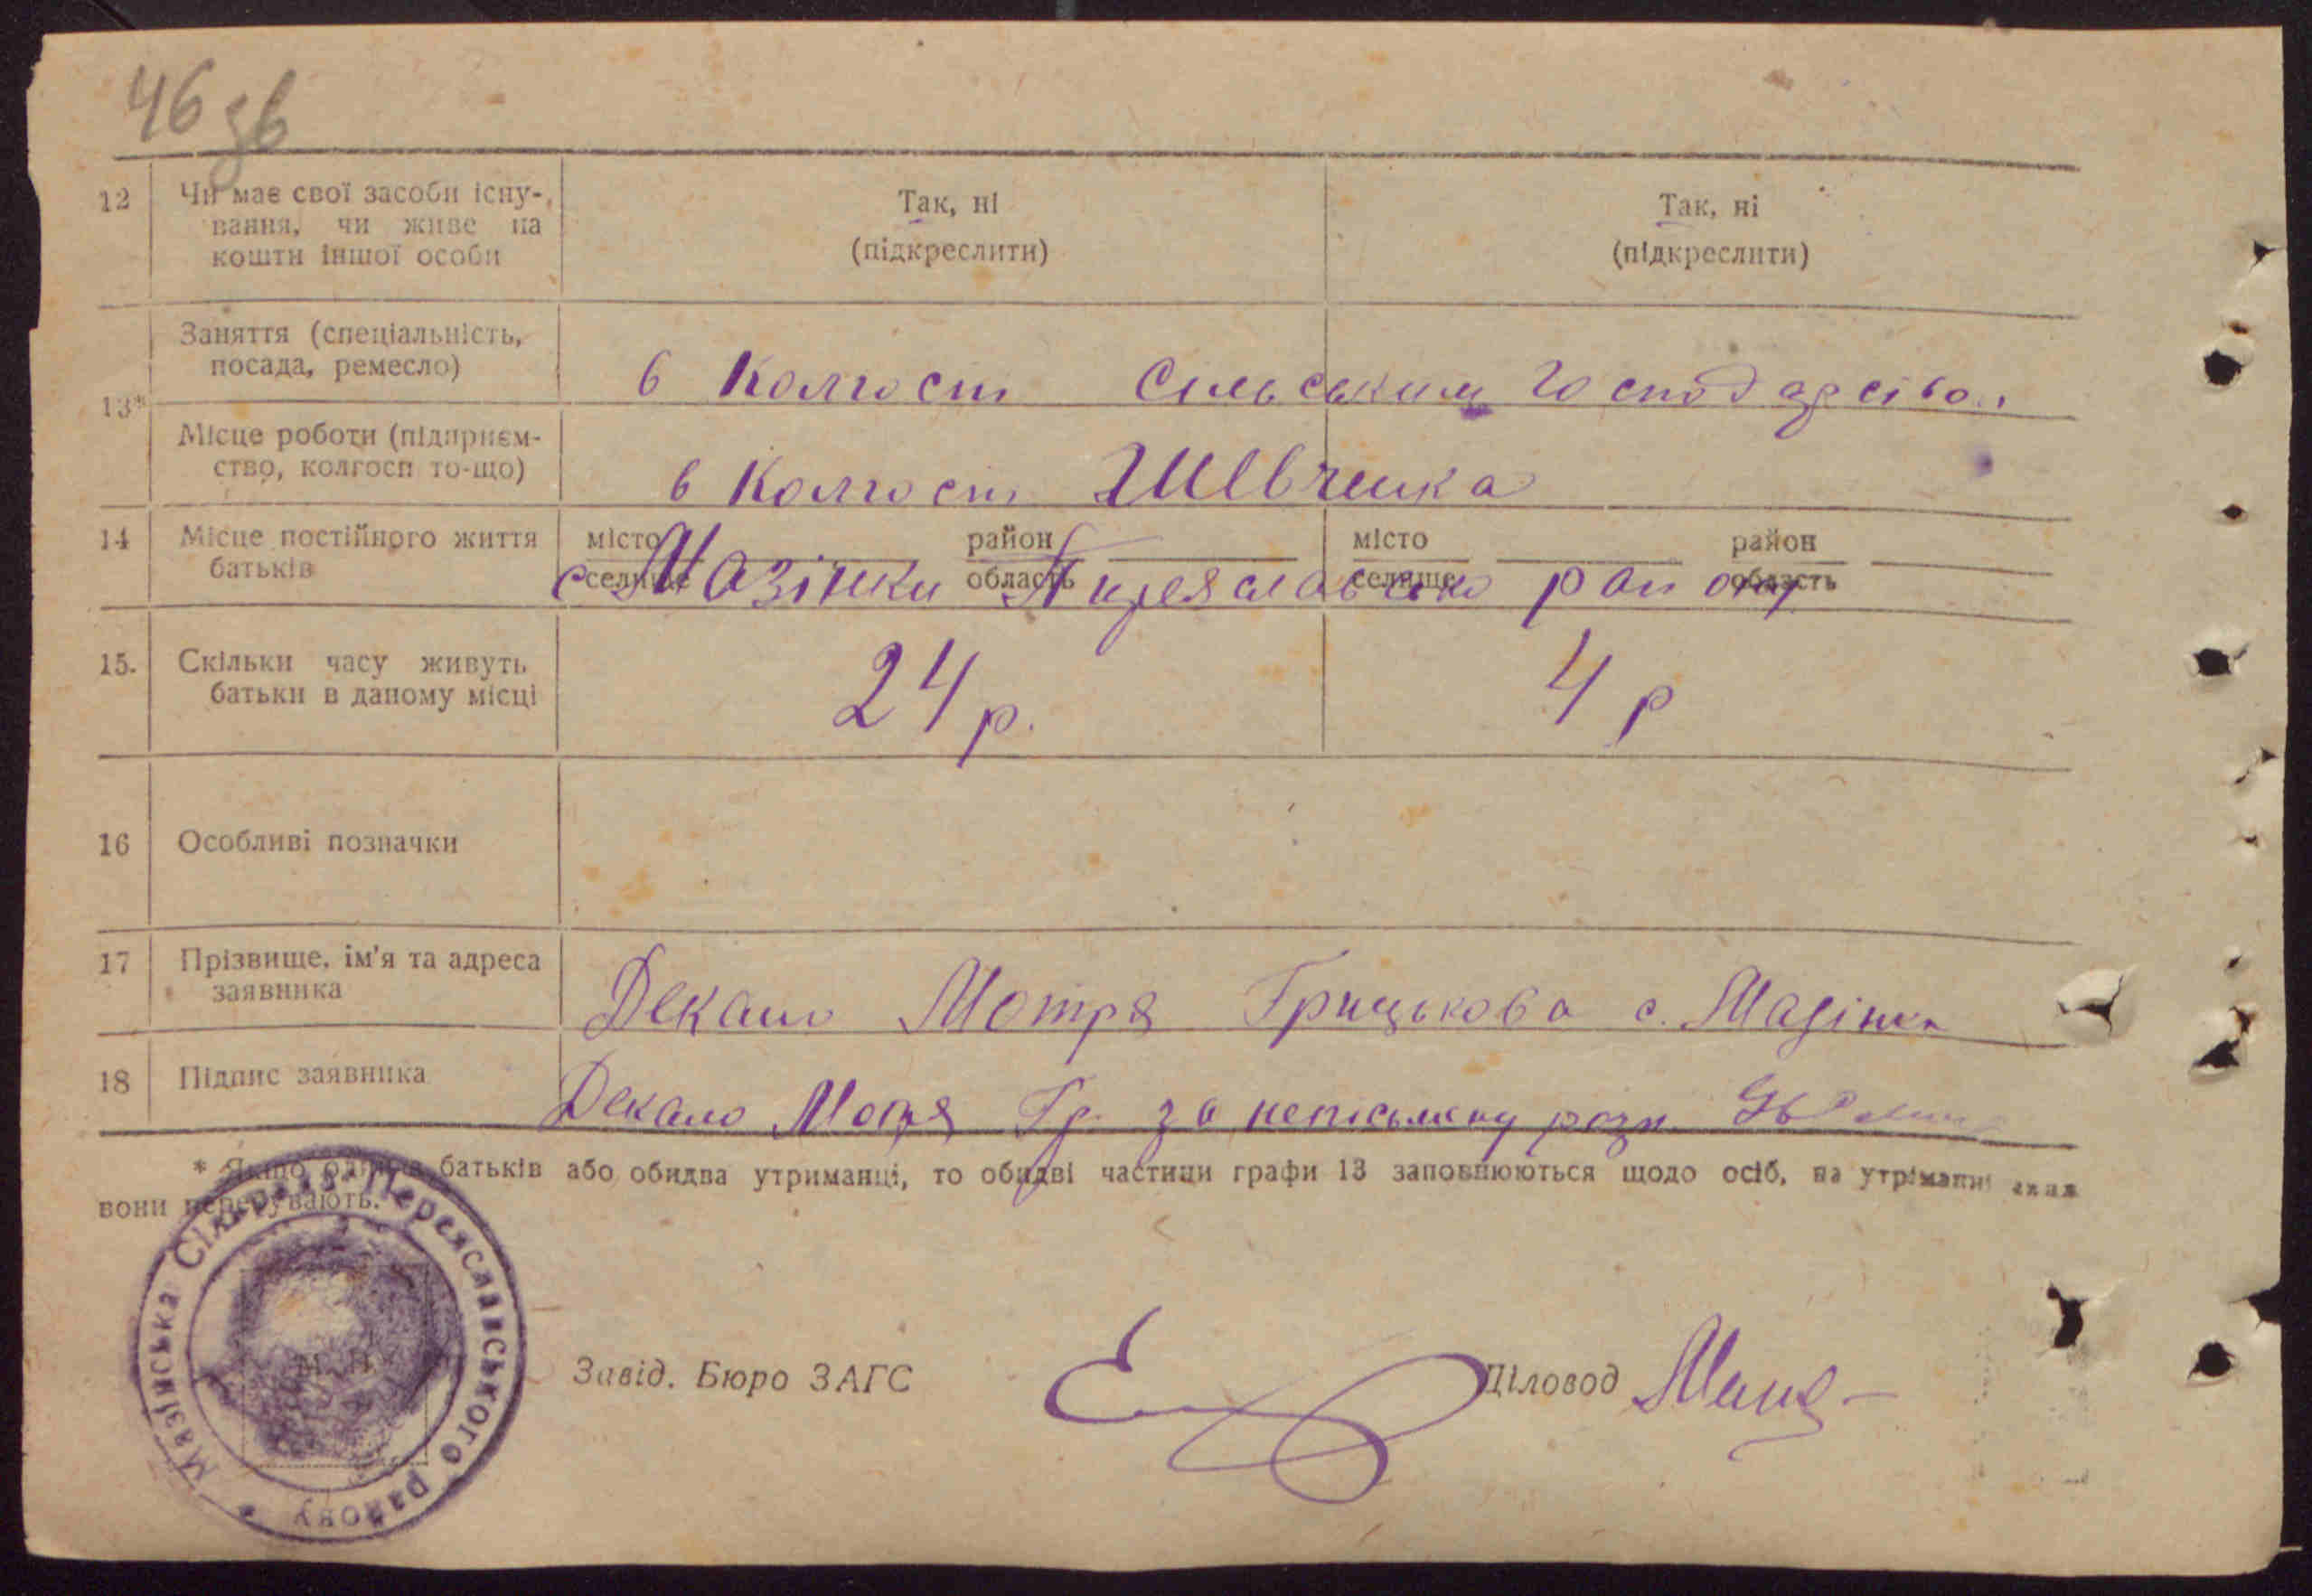 46 зв
12 Чи має свої засоби існу- Так, ні Так, ні
вання, чи живе на (підкреслити) (підкреслити)
кошти іншої особи
13* Заняття (спеціальність,
посада, ремесло) в Колгоспі Сільським Господарством
Місце роботи (підприєм-
ство, колгосп то-що) в Колгоспі Шевченка
14 Місце постійного життя місто район місто район
батьків селище область селище область
с. Мазінки Переяславсько району
15. Скільки часу живуть 24 р. 4 р
батьки в даному місці
16 Особливі позначки
17 Прізвище, ім'я та адреса
заявника Декало Мотря Грицькова с. Мазінки
18 Підпис заявника Декало Мотря Гр. за неписьмену розп.
* Якщо один з батьків або обидва утриманці, то обидві частини графи 13 заповнюються щодо осіб, на утриманні яких
вони перебувають.
Мазінська Сільрада Переяславського району
М. П.
Завід. Бюро ЗАГС Діловод